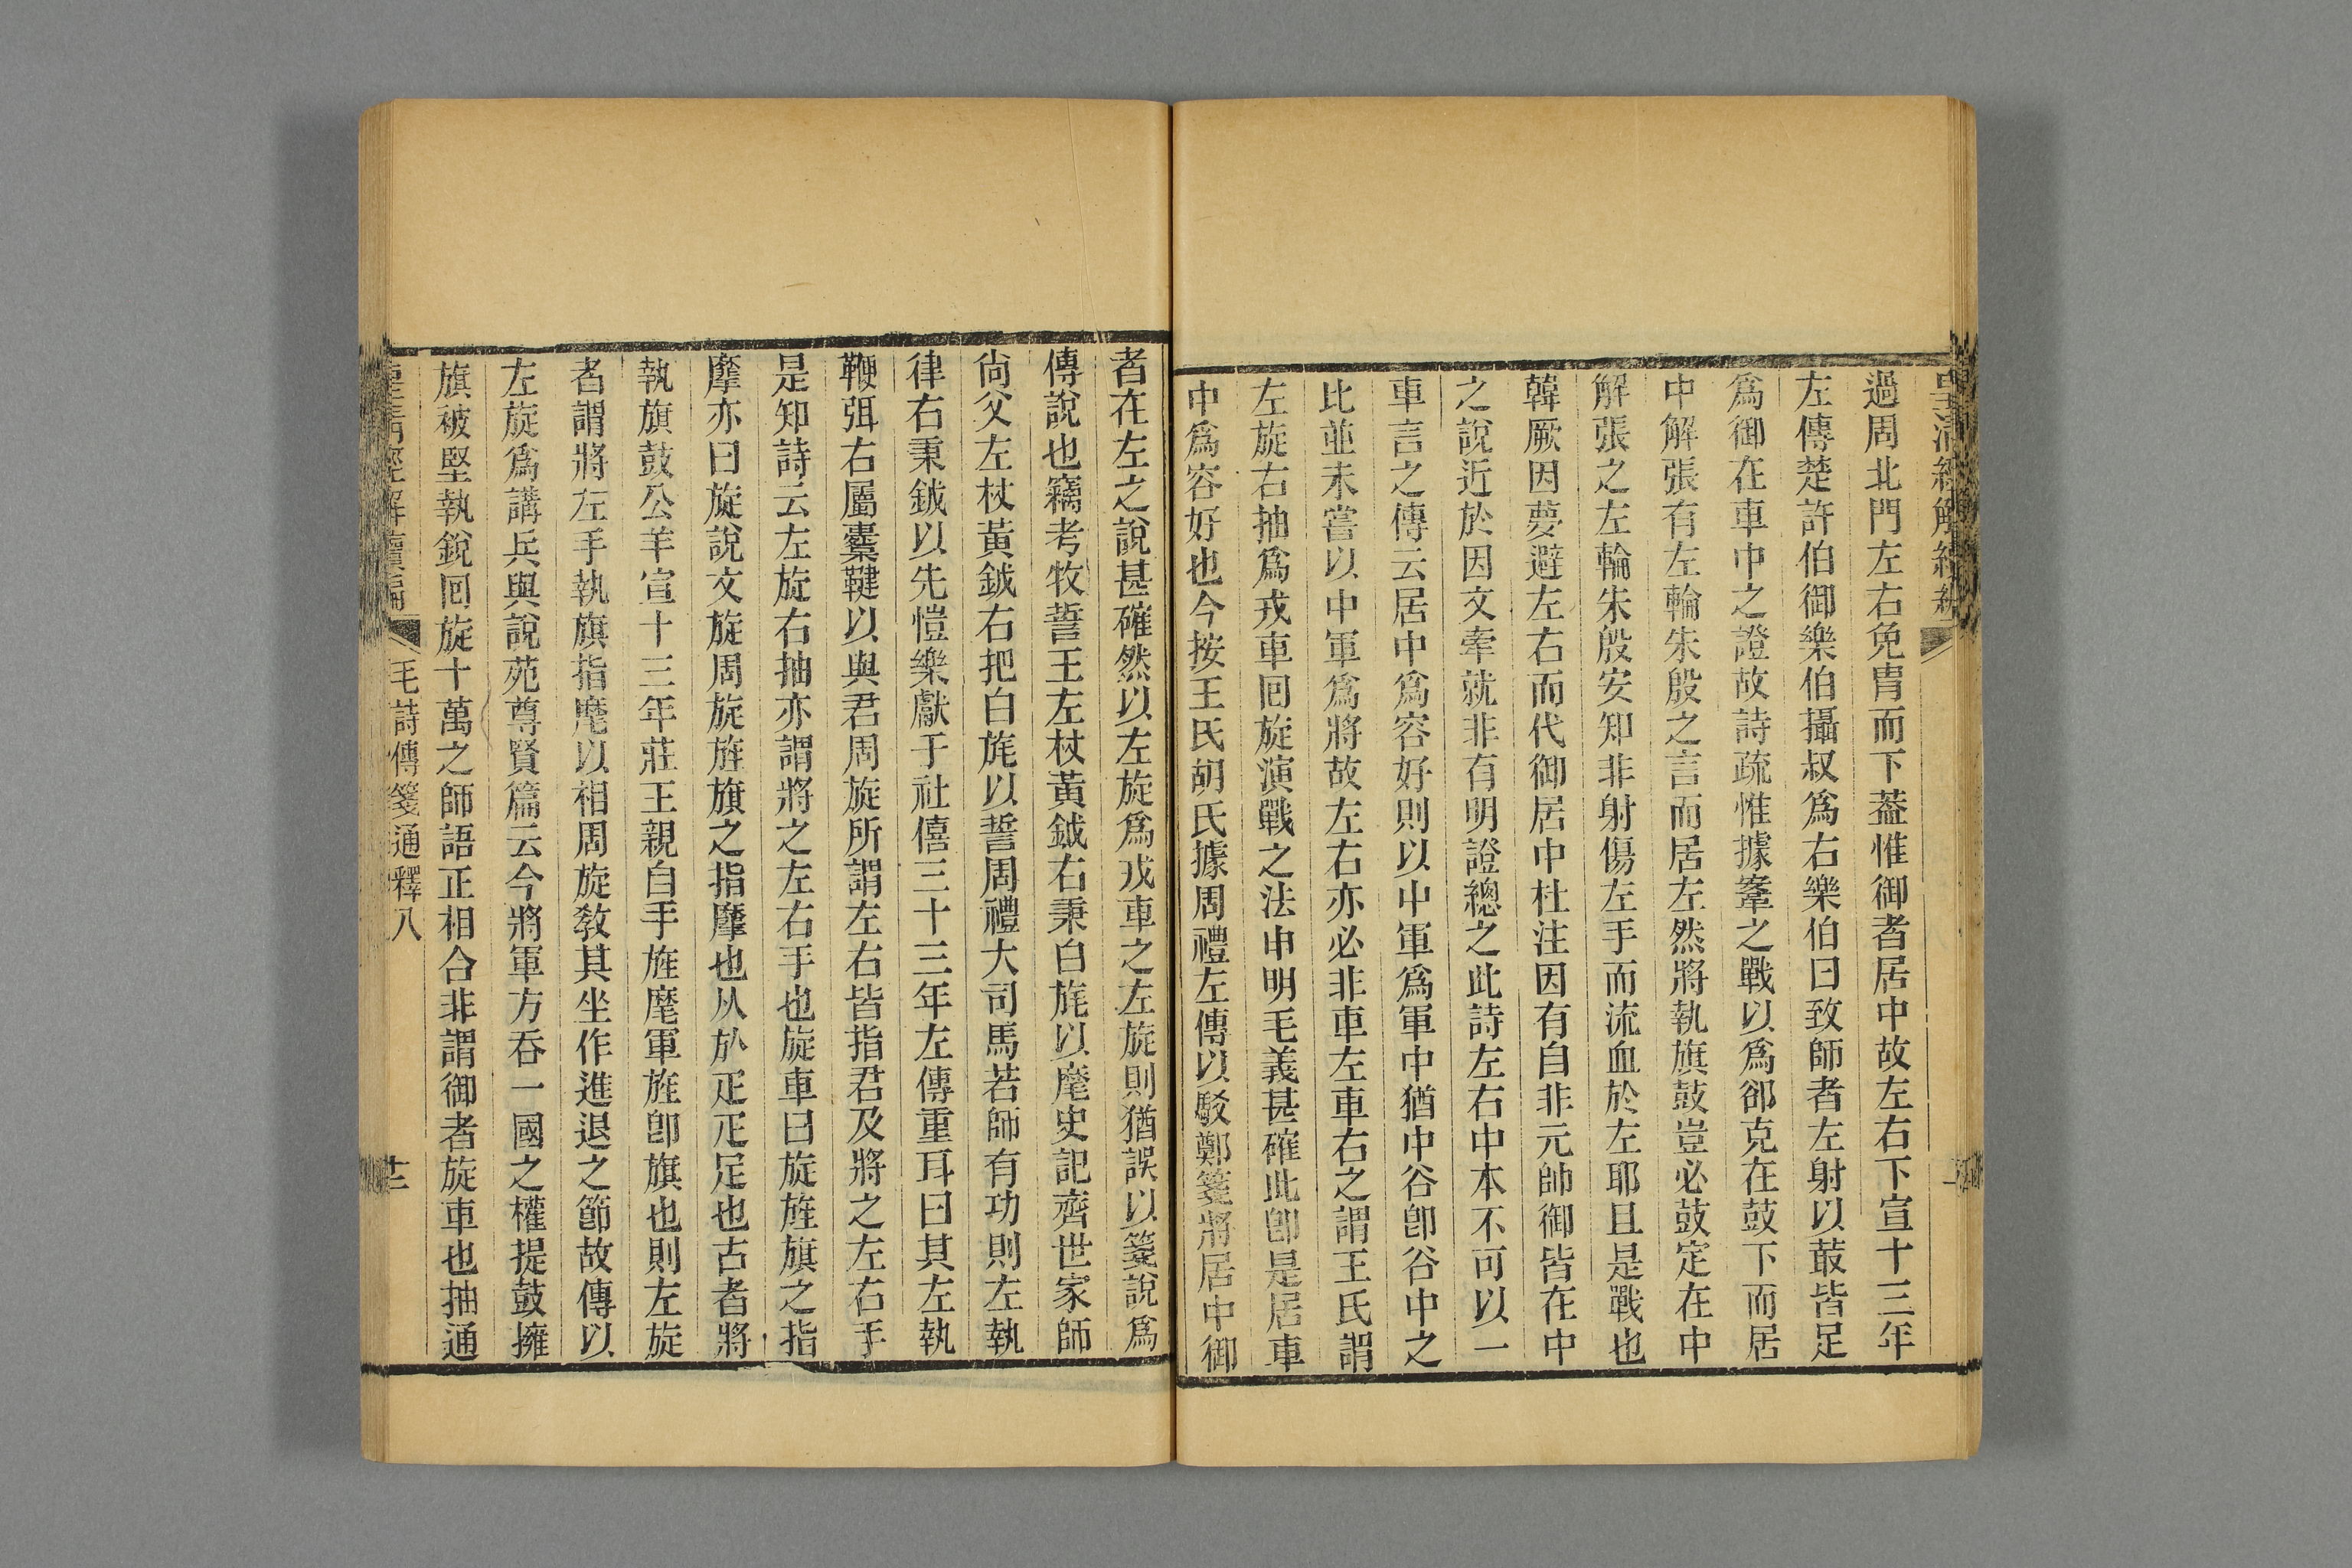 皇清經解續編
過周北門左右免冑而下葢惟御者居中故左右下宣十三年
左傳楚許伯御樂伯攝叔爲右樂伯曰致師者左射以菆皆足
爲御在車中之證故詩疏惟據鞌之戰以爲郤克在鼓下而居
中解張有左輪朱殷之言而居左然將執旗鼓豈必鼓定在中
解張之左輪朱殷安知非射傷左手而流血於左耶且是戰也
韓厥因夢避左右而代御居中杜注因有自非元帥御皆在中
之說近於因文牽就非有明證總之此詩左右中本不可以一
車言之傳云居中爲容好則以中軍爲軍中猶中谷卽谷中之
比並未嘗以中軍爲將故左右亦必非車左車右之謂王氏謂
左旋右抽爲戎車回旋演戰之法申明毛義甚確此卽是居車
中爲容好也今按王氏胡氏據周禮左傳以駁鄭箋將居中御
者在左之說甚確然以左旋爲戎車之左旋則猶誤以箋說爲
傳說也竊考牧誓王左杖黃鉞右秉白旄以麾史記齊世家師
尙父左杖黃鉞右把白旄以誓周禮大司馬若師有功則左執
律右秉鉞以先愷樂獻于社僖三十三年左傳重耳曰其左執
鞭弭右屬櫜鞬以與君周旋所謂左右皆指君及將之左右手
是知詩云左旋右抽亦謂將之左右手也旋車曰旋旌旗之指
摩亦曰旋說文旋周旋旌旗之指摩也从㫃疋疋足也古者將
執旗鼓公羊宣十三年莊王親自手旌麾軍旌卽旗也則左旋
者謂將左手執旗指麾以相周旋敎其坐作進退之節故傳以
左旋爲講兵與說苑尊賢篇云今將軍方吞一國之權提鼓擁
旗被堅執銳回旋十萬之師語正相合非謂御者旋車也抽通
皇清經解續編 毛詩傳箋通釋八 十二